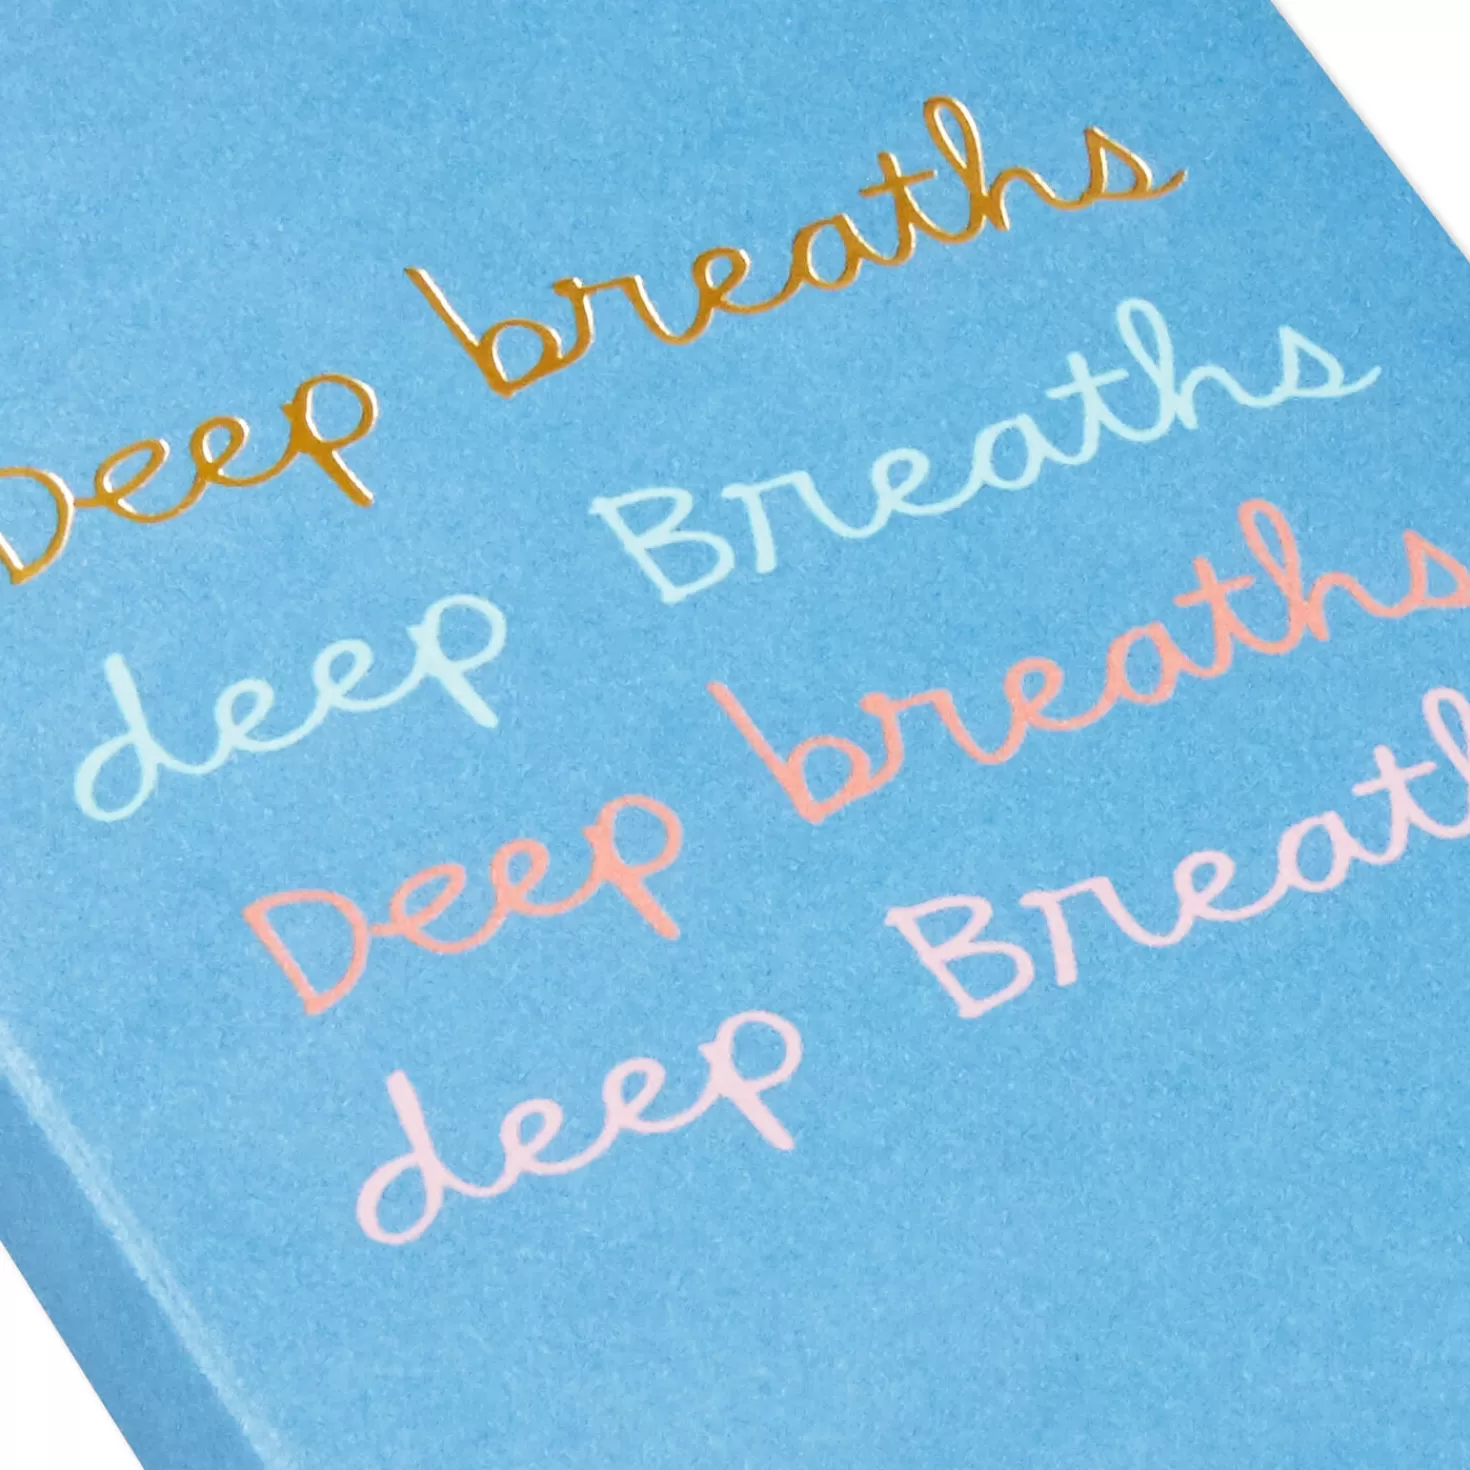 Deep breaths
deep Breaths
Deep breaths
deep Breath